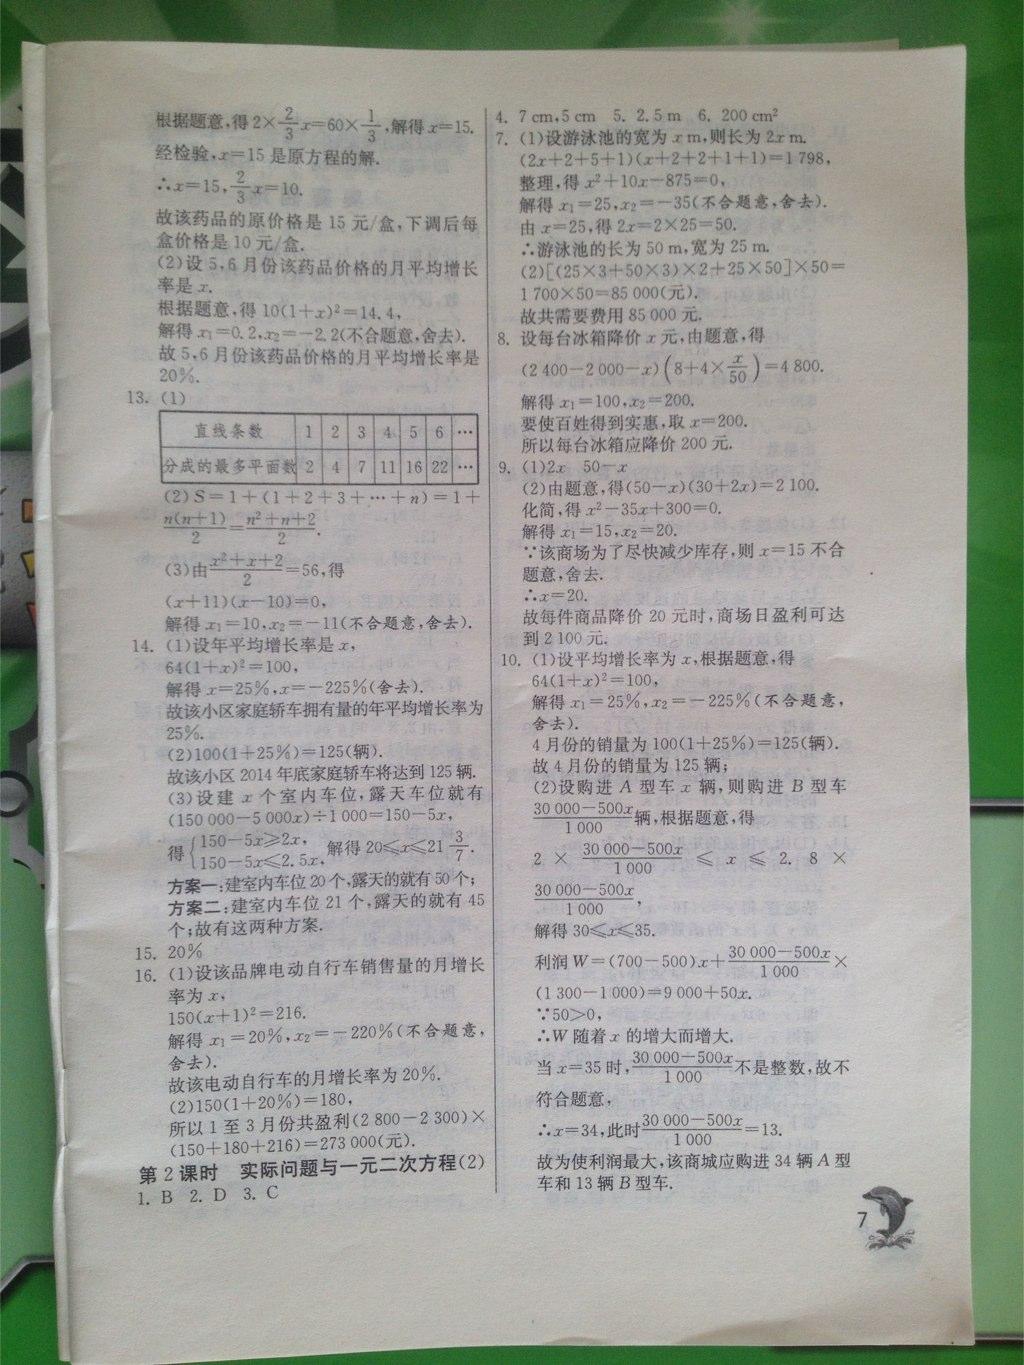 根据题意,得2×2/3x=60×1/3,解得x=15.
经检验,x=15是原方程的解.
∴x=15,2/3x=10.
故该药品的原价格是15元/盒,下调后每
盒价格是10元/盒.
(2)设5,6月份该药品价格的月平均增长
率是x.
根据题意,得10(1+x)²=14.4,
解得x₁=0.2,x₂=-2.2(不合题意,舍去).
故5,6月份该药品价格的月平均增长率是
20%.
13. (1)
直线条数 1 2 3 4 5 6 …
分成的最多平面数 2 4 7 11 16 22 …
(2)S=1+(1+2+3+…+n)=1+
n(n+1)/2=n²+n+2/2.
(3)由x²+x+2/2=56,得
(x+11)(x-10)=0,
解得x₁=10,x₂=-11(不合题意,舍去).
14. (1)设年平均增长率是x,
64(1+x)²=100,
解得x=25%,x=-225%(舍去).
故该小区家庭轿车拥有量的年平均增长率为
25%.
(2)100(1+25%)=125(辆).
故该小区2014年底家庭轿车将达到125辆.
(3)设建x个室内车位,露天车位就有
(150 000-5 000x)÷1 000=150-5x,
得{150-5x≥2x, 150-5x≤2.5x, 解得20≤x≤21 3/7.
方案一:建室内车位20个,露天的就有50个;
方案二:建室内车位21个,露天的就有45
个;故有这两种方案.
15. 20%
16. (1)设该品牌电动自行车销售量的月增长
率为x,
150(x+1)²=216.
解得x₁=20%,x₂=-220%(不合题意,
舍去).
故该电动自行车的月增长率为20%.
(2)150(1+20%)=180,
所以1至3月份共盈利(2 800-2 300)×
(150+180+216)=273 000(元).
第2课时 实际问题与一元二次方程(2)
1. B 2. D 3. C
4. 7 cm,5 cm 5. 2.5 m 6. 200 cm²
7. (1)设游泳池的宽为x m,则长为2x m.
(2x+2+5+1)(x+2+2+1+1)=1 798,
整理,得x²+10x-875=0,
解得x₁=25,x₂=-35(不合题意,舍去).
由x=25,得2x=2×25=50.
∴游泳池的长为50 m,宽为25 m.
(2)[(25×3+50×3)×2+25×50]×50=
1 700×50=85 000(元).
故共需要费用85 000元.
8. 设每台冰箱降价x元,由题意,得
(2 400-2 000-x)(8+4×x/50)=4 800.
解得x₁=100,x₂=200.
要使百姓得到实惠,取x=200.
所以每台冰箱应降价200元.
9. (1)2x 50-x
(2)由题意,得(50-x)(30+2x)=2 100.
化简,得x²-35x+300=0.
解得x₁=15,x₂=20.
∵该商场为了尽快减少库存,则x=15不合
题意,舍去.
∴x=20.
故每件商品降价20元时,商场日盈利可达
到2 100元.
10. (1)设平均增长率为x,根据题意,得
64(1+x)²=100,
解得x₁=25%,x₂=-225%(不合题意,
舍去).
4月份的销量为100(1+25%)=125(辆).
故4月份的销量为125辆;
(2)设购进A型车x辆,则购进B型车
30 000-500x/1 000辆,根据题意,得
2×30 000-500x/1 000≤x≤2.8×
30 000-500x/1 000,
解得30≤x≤35.
利润W=(700-500)x+30 000-500x/1 000×
(1 300-1 000)=9 000+50x.
∵50>0,
∴W随着x的增大而增大.
当x=35时,30 000-500x/1 000不是整数,故不
符合题意,
∴x=34,此时30 000-500x/1 000=13.
故为使利润最大,该商城应购进34辆A型
车和13辆B型车.
7